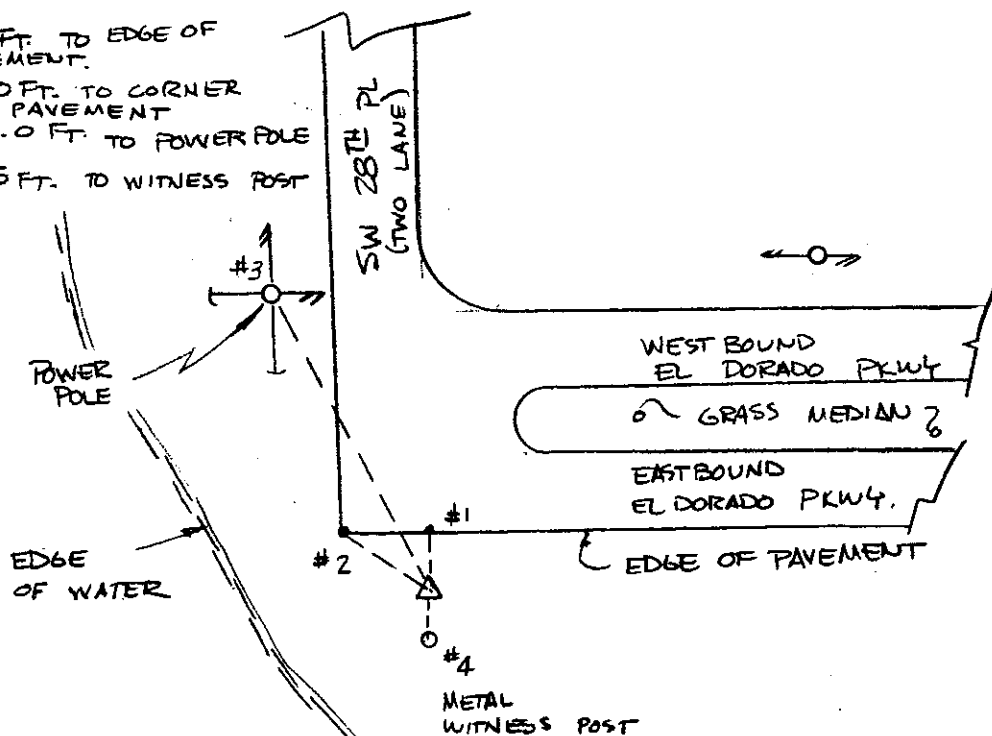 FT. TO EDGE OF
FT. TO CORNER
PAVEMENT
.0 FT. TO POWER POLE
5 FT. TO WITNESS POST
SW 28TH PL
(TWO LANE)
#3
POWER
POLE
WEST BOUND
EL DORADO PKWY
GRASS MEDIAN
EASTBOUND
EL DORADO PKWY.
#1
#2
EDGE OF PAVEMENT
EDGE
OF WATER
#4
METAL
WITNESS POST